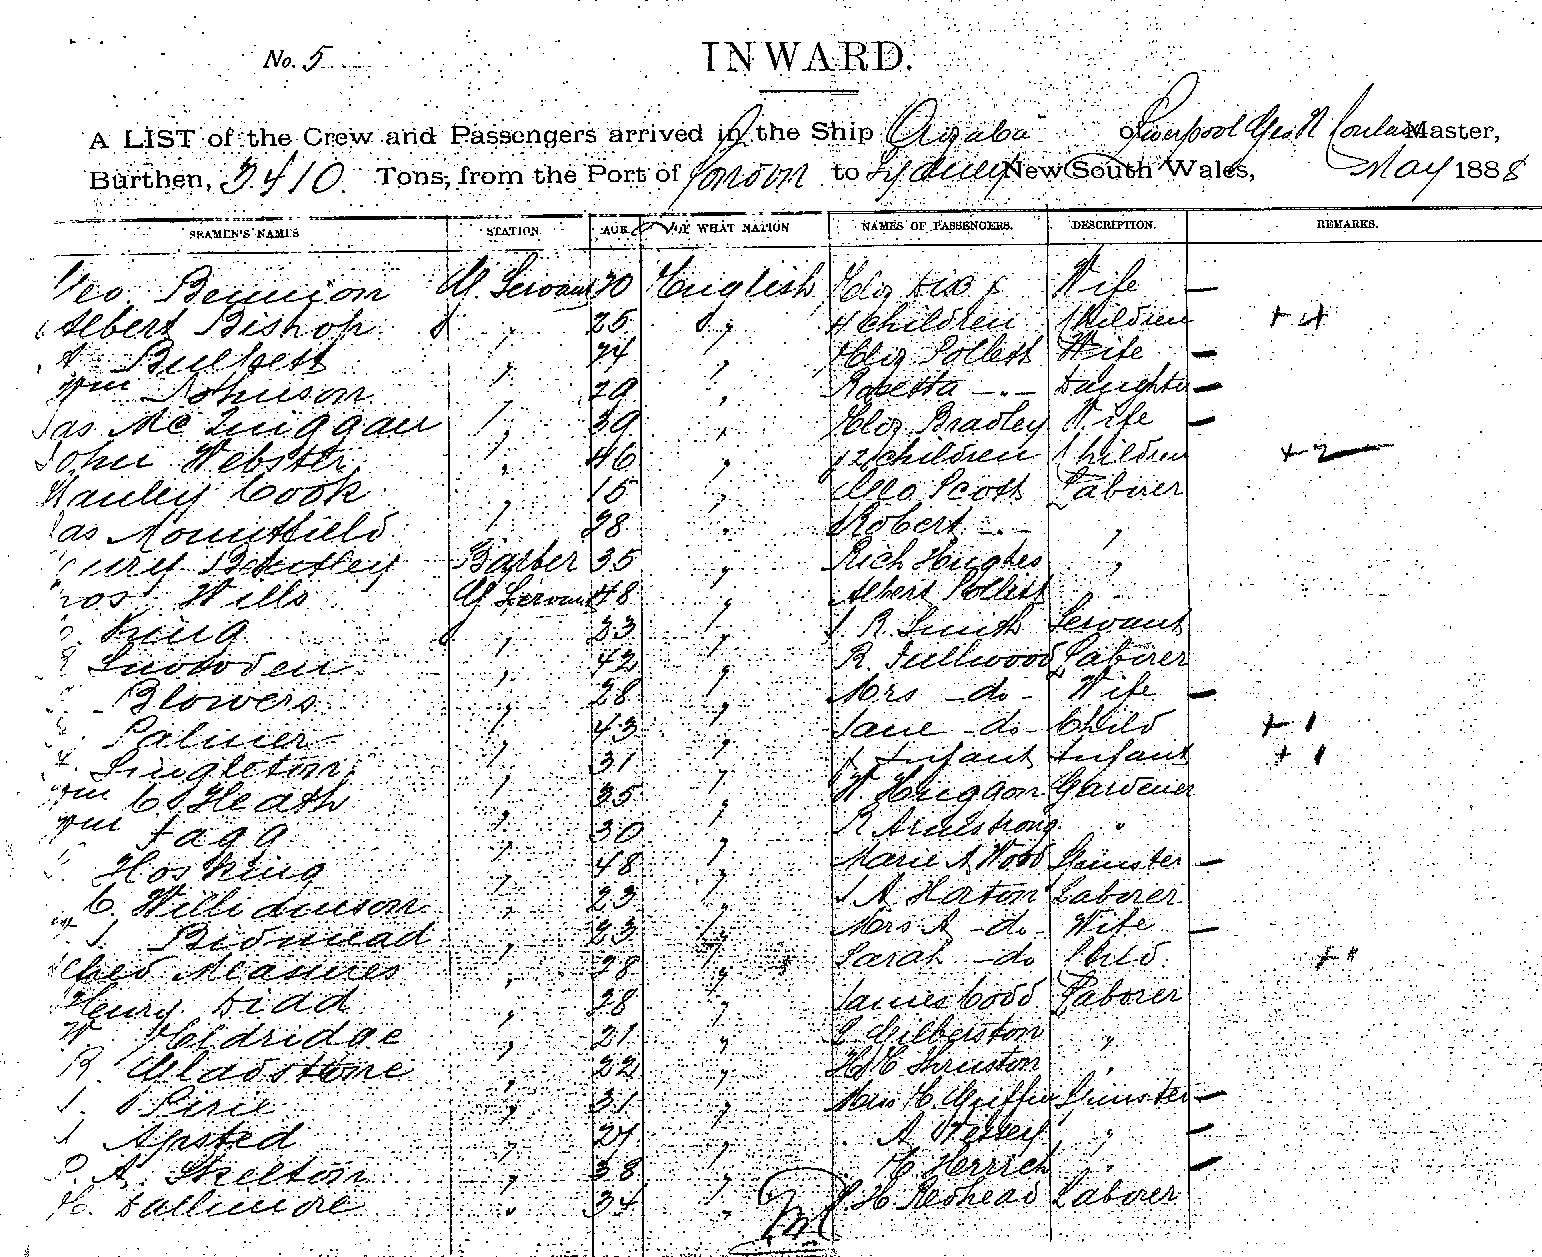 No. 5
INWARD.
A LIST of the Crew and Passengers arrived in the Ship of Liverpool Geo N Master,
Burthen, 3410. Tons, from the Port of London to Sydney New South Wales, May 1888
SEAMEN'S NAMES STATION. AGE. OF WHAT NATION NAMES OF PASSENGERS. DESCRIPTION. REMARKS.
Geo Bennion G. Servant English Eliz Wife —
Albert Bishop " 25 " 4 Children Children + 4
Bulpett " 24 " Eliz Pollett Wife —
Wm Johnson " 29 " Rosetta -"- Daughter —
Jas Mc Guiggan " 39 " Eliz Bradley Wife —
John Webster " 46 " 2 Children Children + 2
Stanley Cook " 15 " Geo Scott Laborer
Jas Mountfield " 28 " Robert -"- "
Henry Barber 35 " Rich Hughes "
Thos Wills G Servant 48 " Albert Pollett "
King " 33 " J. R. Smith Servant
Snowden " 42 " R. Fullwood Laborer
Blowers " 28 " Mrs -do- Wife —
Palmer " 43 " Jane -do- Child + 1
Singleton " 31 " 1 Infant Infant + 1
Wm C Heath " 35 " W Huggon Gardener
Wm Fagg " 30 " R Armstrong "
Hosking " 48 " Marie A Wood Spinster —
C. Williamson " 23 " J A Horton Laborer
J. Bidmead " 23 " Mrs A -do- Wife —
Meannes " 28 " Sarah -do- Child + 1
Henry Diad " 28 " James Codd Laborer
W Eldridge " 21 " Gilberston "
R. Gladstone " 22 " H Thruston "
J. Pirie " 31 " Miss E. Griffin Spinster —
J Apsted " 24 " A "  —
P. A. Skelton " 38 " E Herrick " —
H. Dallimore " 34 " H Redhead Laborer